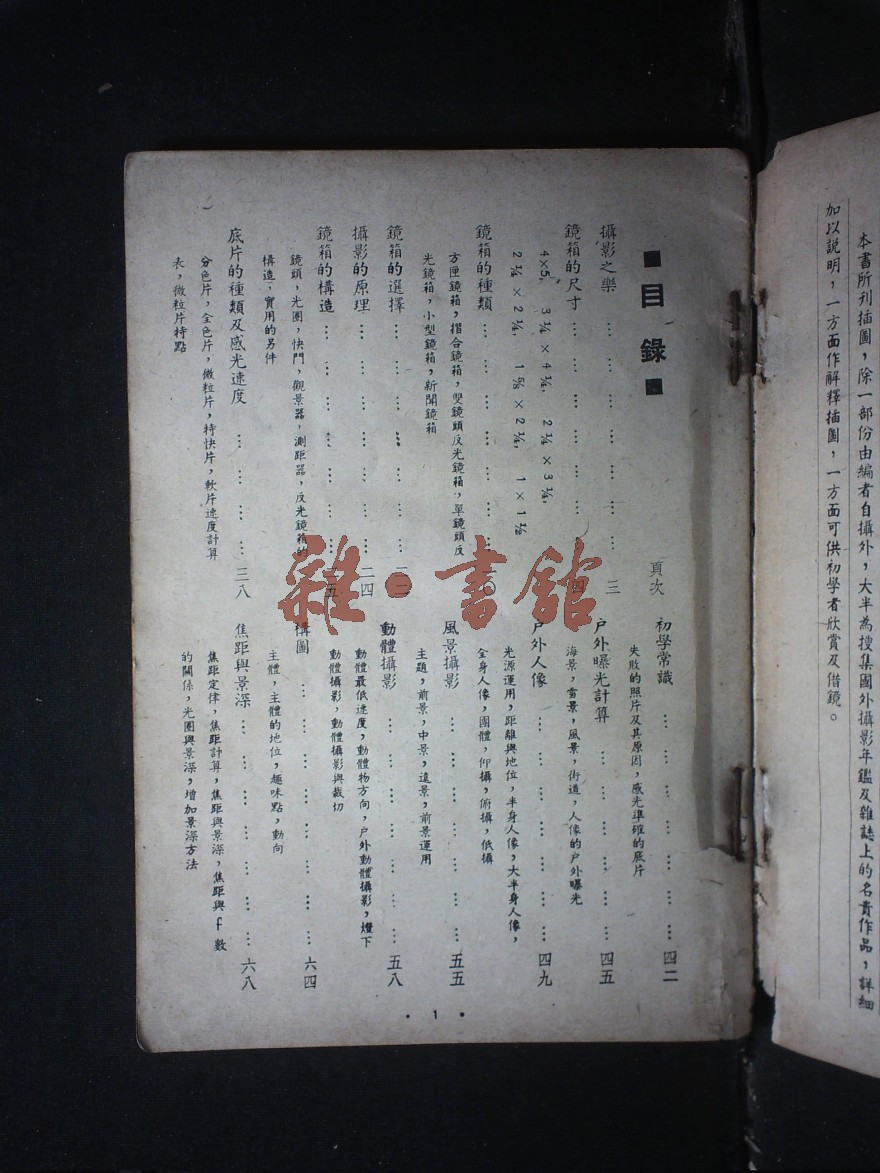 本書所刊插圖，除一部份由編者自攝外，大半為搜集國外攝影年鑑及雜誌上的名貴作品，詳細
加以説明，一方面作解釋插圖，一方面可供初學者欣賞及借鏡。
■目錄■
頁次
攝影之樂 … … … … … … … 三
鏡箱的尺寸 … … … … … … … 四
4×5， 3¼×4¼， 2¼×3¼，
2¼×2¼， 1⅝×2½， 1×1½
鏡箱的種類 … … … … … … … 一〇
方匣鏡箱，摺合鏡箱，雙鏡頭反光鏡箱，單鏡頭反
光鏡箱，小型鏡箱，新聞鏡箱
鏡箱的選擇 … … … … … … …
攝影的原理 … … … … … … … 二四
鏡箱的構造 … … … … … … …
鏡頭，光圈，快門，觀景器，測距器，反光鏡箱的
構造，實用的另件
底片的種類及感光速度 … … … … 三八
分色片，全色片，微粒片，特快片，軟片速度計算
表，微粒片特點
初學常識 … … … … … … 四二
失敗的照片及其原因，感光準確的底片
户外曝光計算 … … … … … … 四五
海景，雪景，風景，街道，人像的户外曝光
户外人像 … … … … … … 四九
光源運用，距離與地位，半身人像，大半身人像，
全身人像，團體，仰攝，俯攝，低攝
風景攝影 … … … … … … … 五五
主題，前景，中景，遠景，前景運用
動體攝影 … … … … … … … 五八
動體最低速度，動體物方向，户外動體攝影，燈下
動體攝影，動體攝影與裁切
構圖 … … … … … … … 六四
主體，主體的地位，趣味點，動向
焦距與景深 … … … … … … 六八
焦距定律，焦距計算，焦距與景深，焦距與f數
的關係，光圈與景深，增加景深方法
·1·
雜·書館